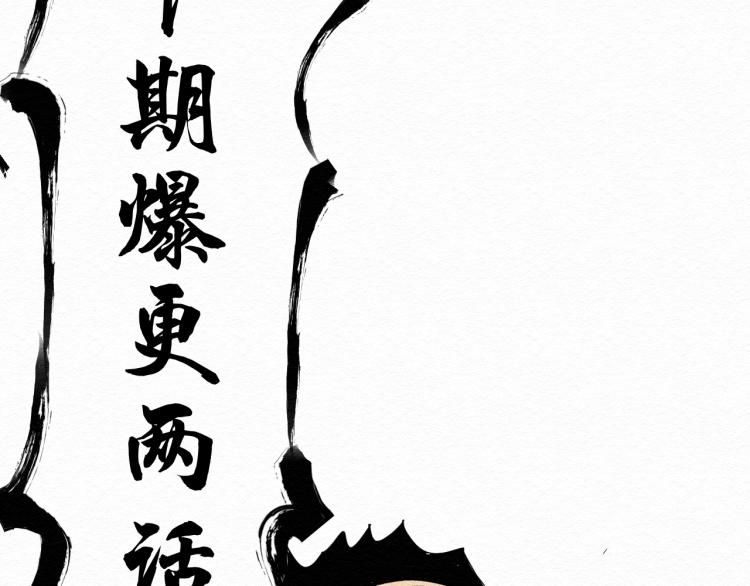 期爆更两话